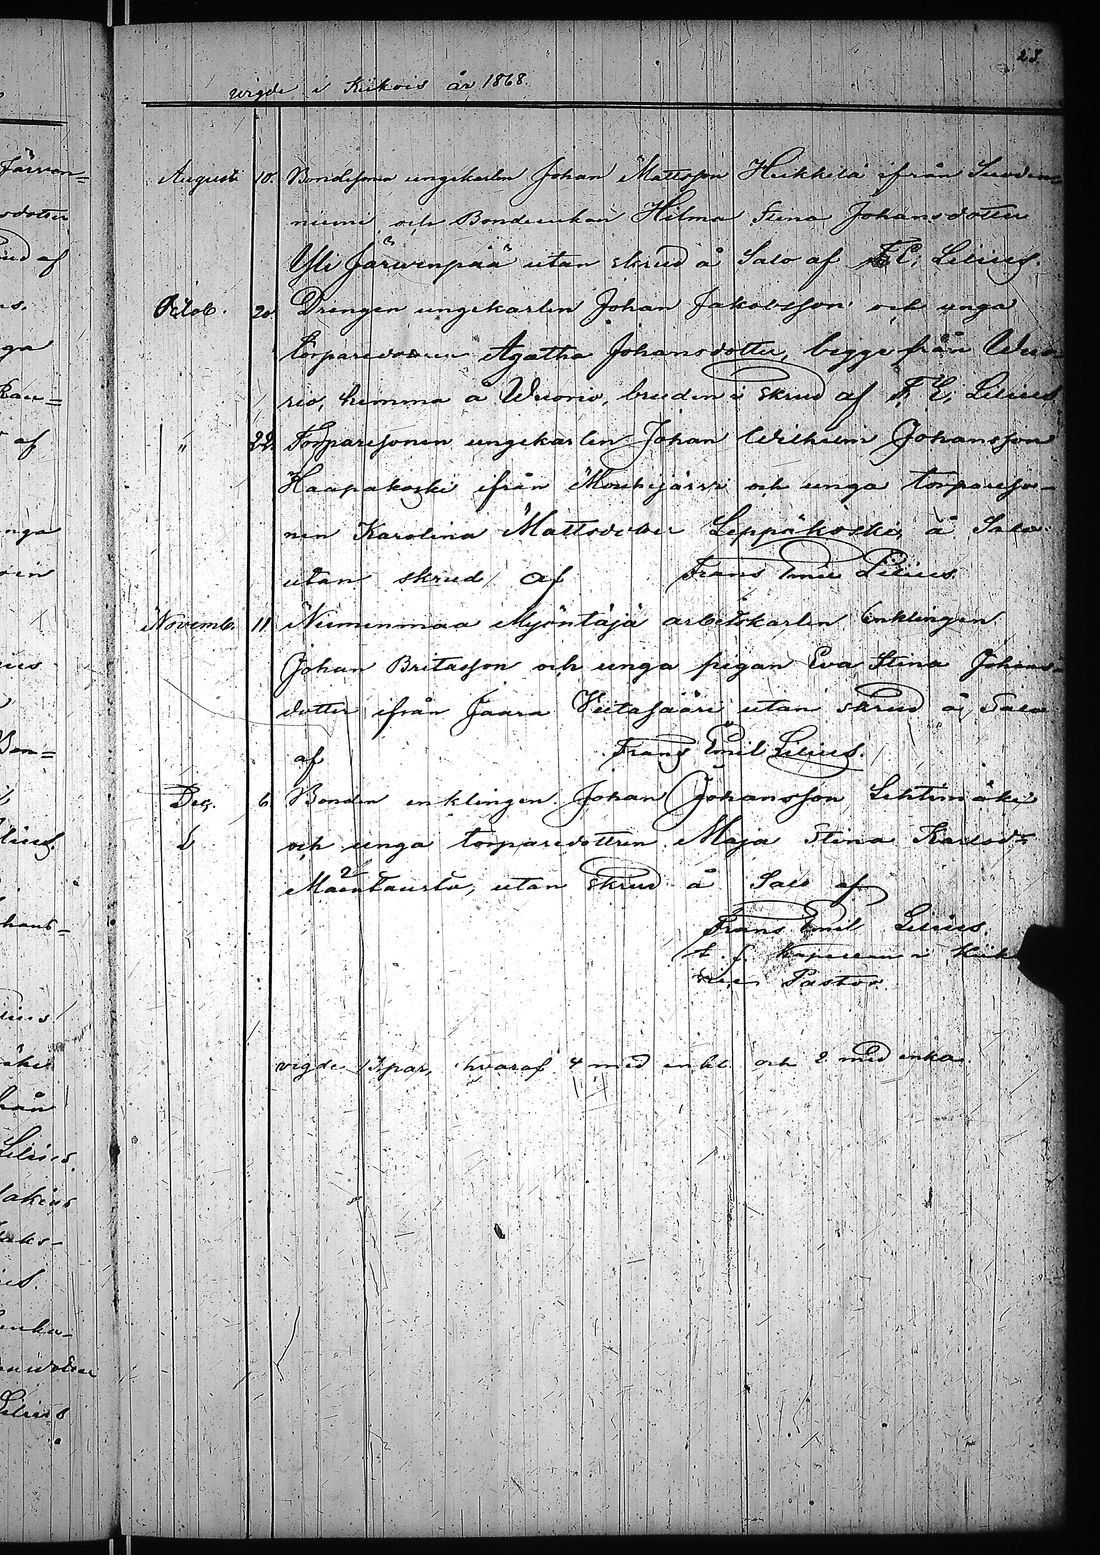 23.
vigde i Kikois år 1868.
August 10. Bondesonen ungekarlen Johan Mattsson Heikkilä ifrån Suoden
niemi och Bondeenkan Hilma Stina Johansdotter
Yli Järvenpää utan skrud å Salo af F. E. Lilius.
Oktob. 20. Drengen ungekarlen Johan Jakobsson och unga
torparedottren Agatha Johansdotter, begge från Wuo
rio, hemma å Wuorio, bruden i skrud af F. E. Lilius
" 22. Torparesonen ungekarlen Johan Wilhelm Johansson
Haapakoski ifrån Mouhijärvi och unga torpareso-
nen Karolina Mattsdotter Leppäkoski, å Salo
utan skrud af Frans Emil Lilius.
Novemb. 11. Niemenmaa Myöntäjä arbetskarlen Enklingen
Johan Britasson och unga pigan Eva Stina Johans
dotter ifrån Jaara Kiitasaari utan skrud å Salo
af Frans Emil Lilius.
Dec. 6. Bonden enklingen Johan Johansson Lehtimäki
och unga torparedottren Maja Stina Karlsdr
utan skrud å Salo af
Frans Emil Lilius
t. f. Kapellan i Kiik
Pastor.
vigde 13 par, hvaraf 4 med enkl. och 2 med enka.
Järven=
dotter
ud af
ga
af
nga
Bon=
hans=
från
Lilius.
enka-
Lilius